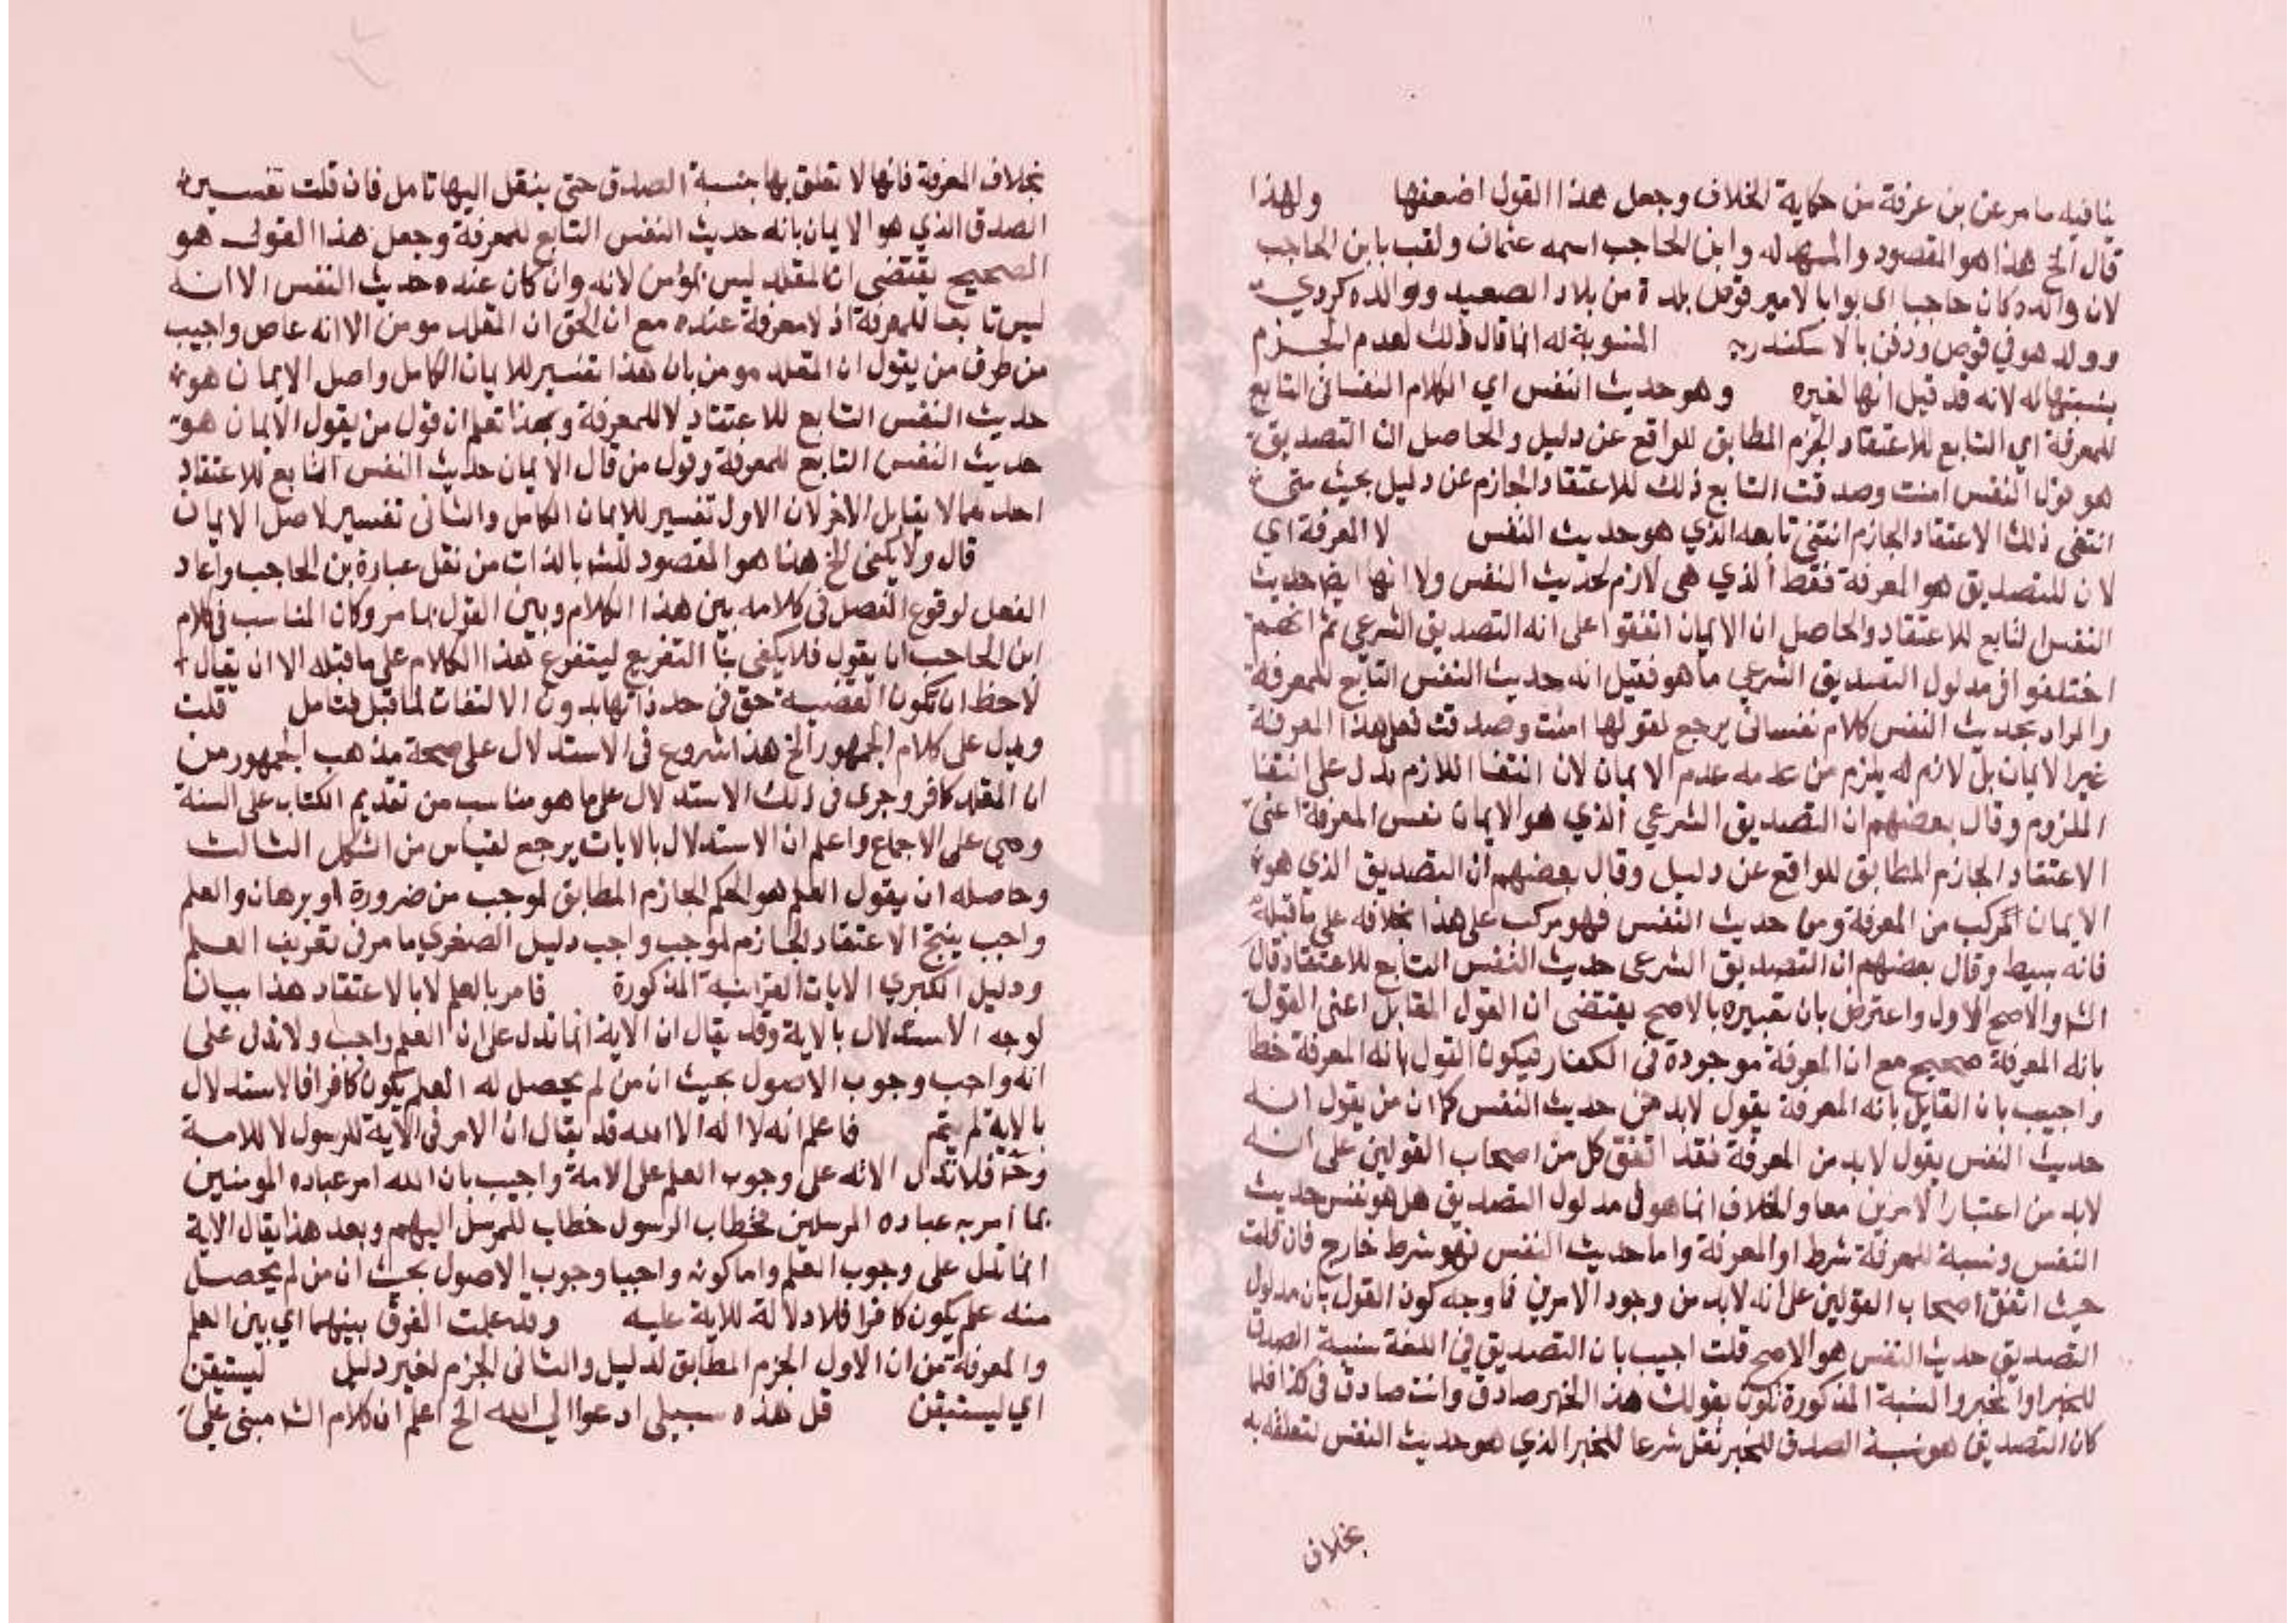 ينافيه ما مر عن بن عرفة من حكاية الخلاف وجعل هذا القول اضعفها ولهذا
قال الخ هذا هو المقصود والممهد له وابن الحاجب اسمه عثمان ولقب بابن الحاجب
لان والده كان حاجبا اي بوابا لامير قوص بلدة من بلاد الصعيد ووالده كردي
وولد هو في قوص ودفن بالاسكندرية المنسوبة له انما قال ذلك لعدم الجزم
بنسبتها له لانه قد قيل انها لغيره وهو حديث النفس اي الكلام النفساني التابع
للمعرفة اي التابع للاعتقاد الجزم المطابق للواقع عن دليل والحاصل ان التصديق
هو قول النفس امنت وصدقت التابع ذلك للاعتقاد الجازم عن دليل بحيث متى
انتفى ذلك الاعتقاد الجازم انتفى تابعه الذي هو حديث النفس لا المعرفة اي
لان للتصديق هو المعرفة فقط الذي هي لازم لحديث النفس ولا انها ايضا حديث
النفس لتابع للاعتقاد والحاصل ان الايمان اتفقوا على انه التصديق الشرعي ثم انهم
اختلفوا في مدلول التصديق الشرعي ما هو فقيل انه حديث النفس التابع للمعرفة
والمراد بحديث النفس كلام نفساني يرجع لقولها امنت وصدقت فعلى هذا المعرفة
غير الايمان بل لازم له يلزم من عدمه عدم الايمان لان انتفا اللازم يدل على انتفا
الملزوم وقال بعضهم ان التصديق الشرعي الذي هو الايمان نفس المعرفة اعني
الاعتقاد الجازم المطابق للواقع عن دليل وقال بعضهم ان التصديق الذي هو
الايمان مركب من المعرفة ومن حديث النفس فهو مركب على هذا بخلافه على ما قبله
فانه بسيط وقال بعضهم ان التصديق الشرعي حديث النفس التابع للاعتقاد قال
الش والاصح الاول واعترض بان تعبيره بالاصح يقتضى ان القول المقابل اعني القول
بانه المعرفة صحيح مع ان المعرفة موجودة في الكفار فيكون القول بانه المعرفة خطا
واجيب بان القايل بانه المعرفة يقول لابد من حديث النفس كما ان من يقول انه
حديث النفس يقول لابد من المعرفة فقد اتفق كل من اصحاب القولين على انه
لابد من اعتبار الامرين معا والخلاف انما هو في مدلول التصديق هل هو نفس حديث
النفس ونسبة للمعرفة شرط او المعرفة واما حديث النفس فهو شرط خارج فان قلت
حيث اتفق اصحاب القولين على انه لابد من وجود الامرين فما وجه كون القول بان مدلول
التصديق حديث النفس هو الاصح قلت اجيب بان التصديق في اللغة نسبة الصدق
للخبر او المخبر والنسبة المذكورة تكون بقولك هذا الخبر صادق وانت صادق في كذا فلما
كان التصديق هو نسبة الصدق للخبر نقل شرعا للخبر الذي هو حديث النفس لتعلقه به
بخلاف
بخلاف المعرفة فانها لا تعلق بها بنسبة الصدق حتى ينقل اليها تامل فان قلت تفسير
الصدق الذي هو الايمان بانه حديث النفس التابع للمعرفة وجعل هذا القول هو
الصحيح يقتضى ان المقلد ليس بمؤمن لانه وان كان عنده حديث النفس الا انه
ليس تابعا للمعرفة اذ لا معرفة عنده مع ان الحق ان المقلد مومن الا انه عاص واجيب
من طرف من يقول ان المقلد مومن بان هذا تفسير للايمان الكامل واصل الايمان هو
حديث النفس التابع للاعتقاد لا للمعرفة وبهذا تعلم ان قول من يقول الايمان هو
حديث النفس التابع للمعرفة وقول من قال الايمان حديث النفس التابع للاعتقاد
احدهما لا يقابل الاخر لان الاول تفسير للايمان الكامل والثاني تفسير لاصل الايمان
قال ولا يكفى الخ هذا هو المقصود للش بالذات من نقل عبارة بن الحاجب واعاد
الفعل لوقوع الفصل في كلامه بين هذا الكلام وبين القول بما مر وكان المناسب في كلام
ابن الحاجب ان يقول فلا يكفى بفا التفريع ليتفرع هذا الكلام على ما قبله الا ان يقال
لاحظ ان تكون القضية حق في حد ذاتها بدون الالتفات لما قبل فتامل قلت
ويدل على كلام الجمهور الخ هذا شروع في الاستدلال على صحة مذهب الجمهور من
ان المقلد كافر وجرى في ذلك الاستدلال على ما هو مناسب من تقديم الكتاب على السنة
وهي على الاجماع واعلم ان الاستدلال بالايات يرجع لقياس من الشكل الثالث
وحاصله ان يقول العلم هو الحكم الجازم المطابق لموجب من ضرورة او برهان والعلم
واجب ينتج الاعتقاد الجازم لموجب واجب دليل الصغري ما مر في تعريف العلم
ودليل الكبري الايات القرانية المذكورة فامر بالعلم لا بالاعتقاد هذا بيان
لوجه الاستدلال بالاية وقد يقال ان الاية انما تدل على ان العلم واجب ولا تدل على
انه واجب وجوب الاصول بحيث ان من لم يحصل له العلم يكون كافرا فالاستدلال
بالاية لم يتم فاعلم انه لا اله الا الله قد يقال ان الامر في الاية للرسول لا للامة
وح فلا تدل الاية على وجوب العلم على الامة واجيب بان الله امر عباده المومنين
بما امر به عباده المرسلين فخطاب الرسول خطاب للمرسل اليهم وبعد هذا يقال الاية
انما تدل على وجوب العلم واما كونه واجبا وجوب الاصول بحيث ان من لم يحصل
منه علم يكون كافرا فلا دلالة للاية عليه وقد علمت الفرق بينهما اي بين العلم
والمعرفة من ان الاول الجزم المطابق لدليل والثاني الجزم لغير دليل ليستيقن
اي ليستيقن قل هذه سبيلي ادعوا الي الله الخ اعلم ان كلام الش مبني على